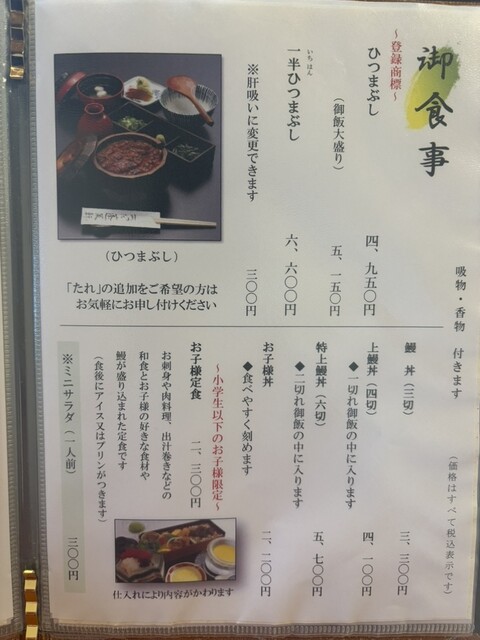 御食事
~登録商標~
ひつまぶし 四、九五〇円
(御飯大盛り) 五、一五〇円
いちはん
一半ひつまぶし 六、六〇〇円
※肝吸いに変更できます 三〇〇円
(ひつまぶし)
「たれ」の追加をご希望の方は
お気軽にお申し付けください
吸物・香物 付きます
(価格はすべて税込表示です)
鰻 丼(三切) 三、三〇〇円
上鰻丼(四切) 四、一〇〇円
◆一切れ御飯の中に入ります
特上鰻丼(六切) 五、七〇〇円
◆二切れ御飯の中に入ります
お子様丼 二、二〇〇円
◆食べやすく刻めます
~小学生以下のお子様限定~
お子様定食 二、三〇〇円
お刺身や肉料理、出汁巻きなどの
和食とお子様の好きな食材や
鰻が盛り込まれた定食です
(食後にアイス又はプリンがつきます)
※ミニサラダ(一人前) 三〇〇円
仕入れにより内容がかわります